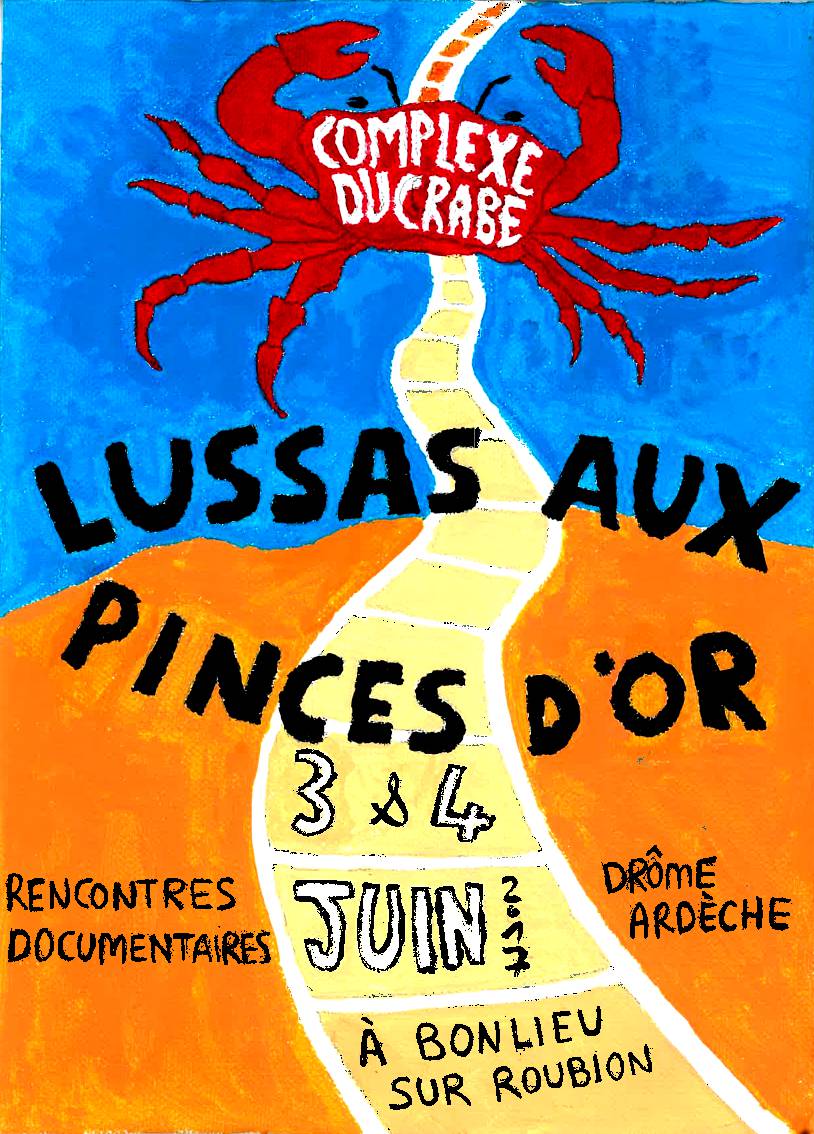 COMPLEXE
DU CRABE
LUSSAS AUX
PINCES D'OR
3 & 4
JUIN 2017
RENCONTRES
DOCUMENTAIRES
DRÔME
ARDÈCHE
À BONLIEU
SUR ROUBION